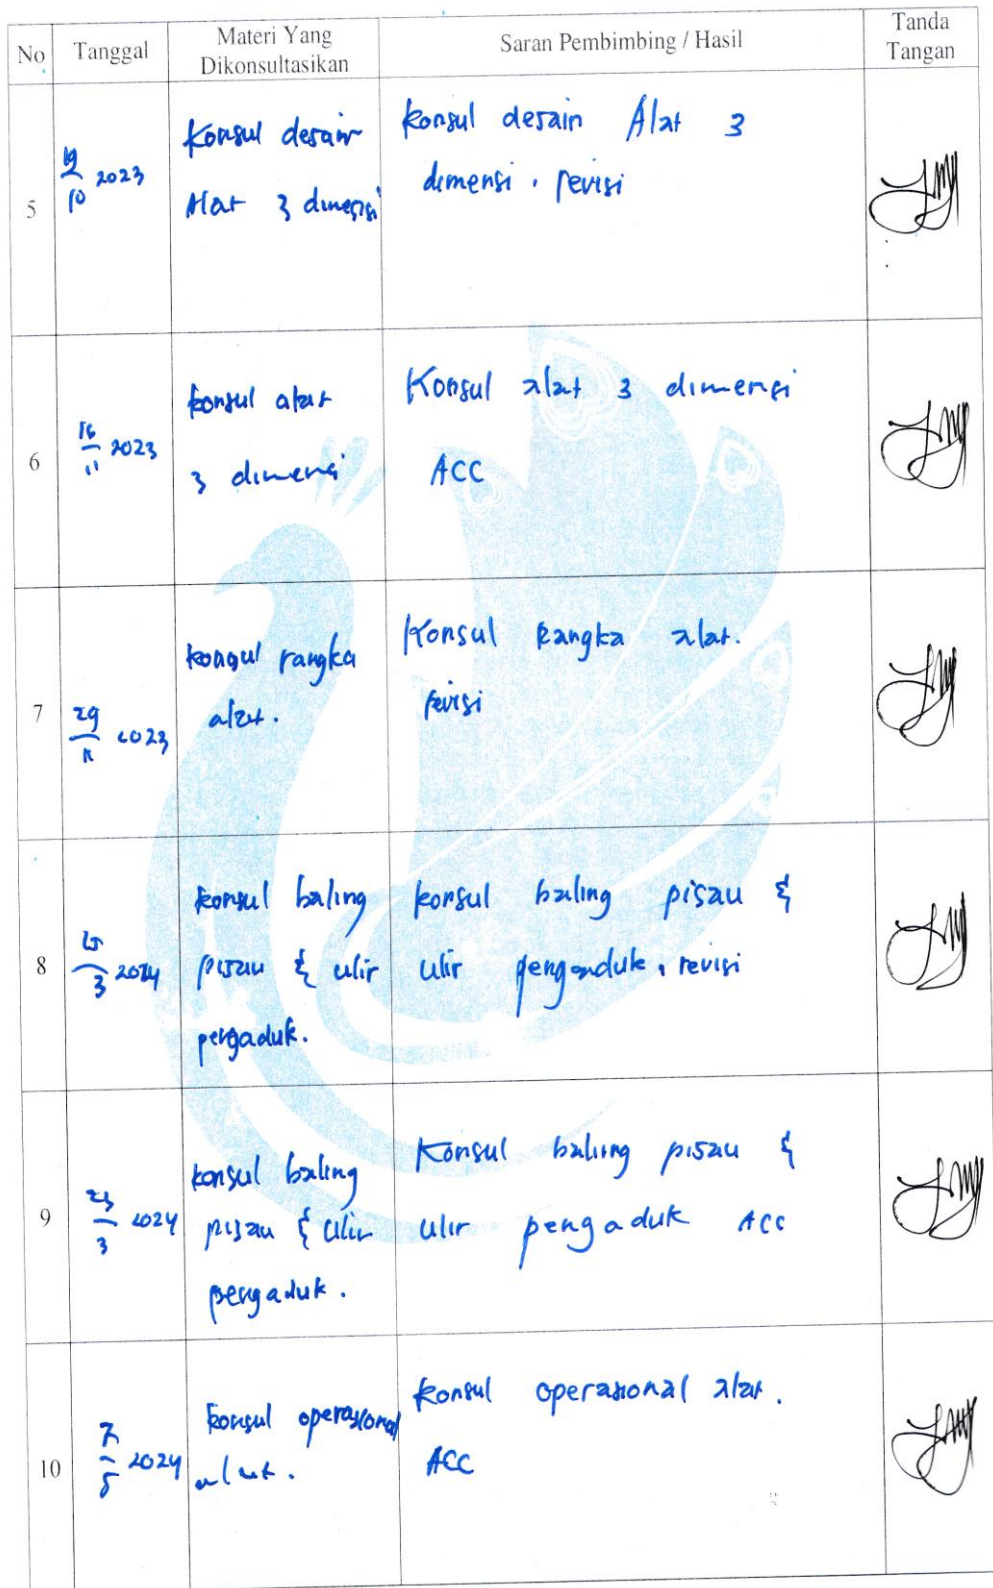 No
Tanggal
Materi Yang
Dikonsultasikan
Saran Pembimbing / Hasil
Tanda
Tangan
5
19/10 2023
Konsul desain
Alat 3 dimensi
konsul desain Alat 3
dimensi, revisi
6
16/11 2023
konsul alat
3 dimensi
Konsul alat 3 dimensi
ACC
7
29/11 2023
konsul rangka
alat.
Konsul Rangka alat.
revisi
8
15/3 2024
konsul baling
pisau & ulir
pengaduk.
konsul baling pisau &
ulir pengaduk, revisi
9
/3 2024
konsul baling
pisau & ulir
pengaduk.
Konsul baling pisau &
ulir pengaduk ACC
10
7/5 2024
konsul operasional
alat.
konsul operasional alat.
ACC